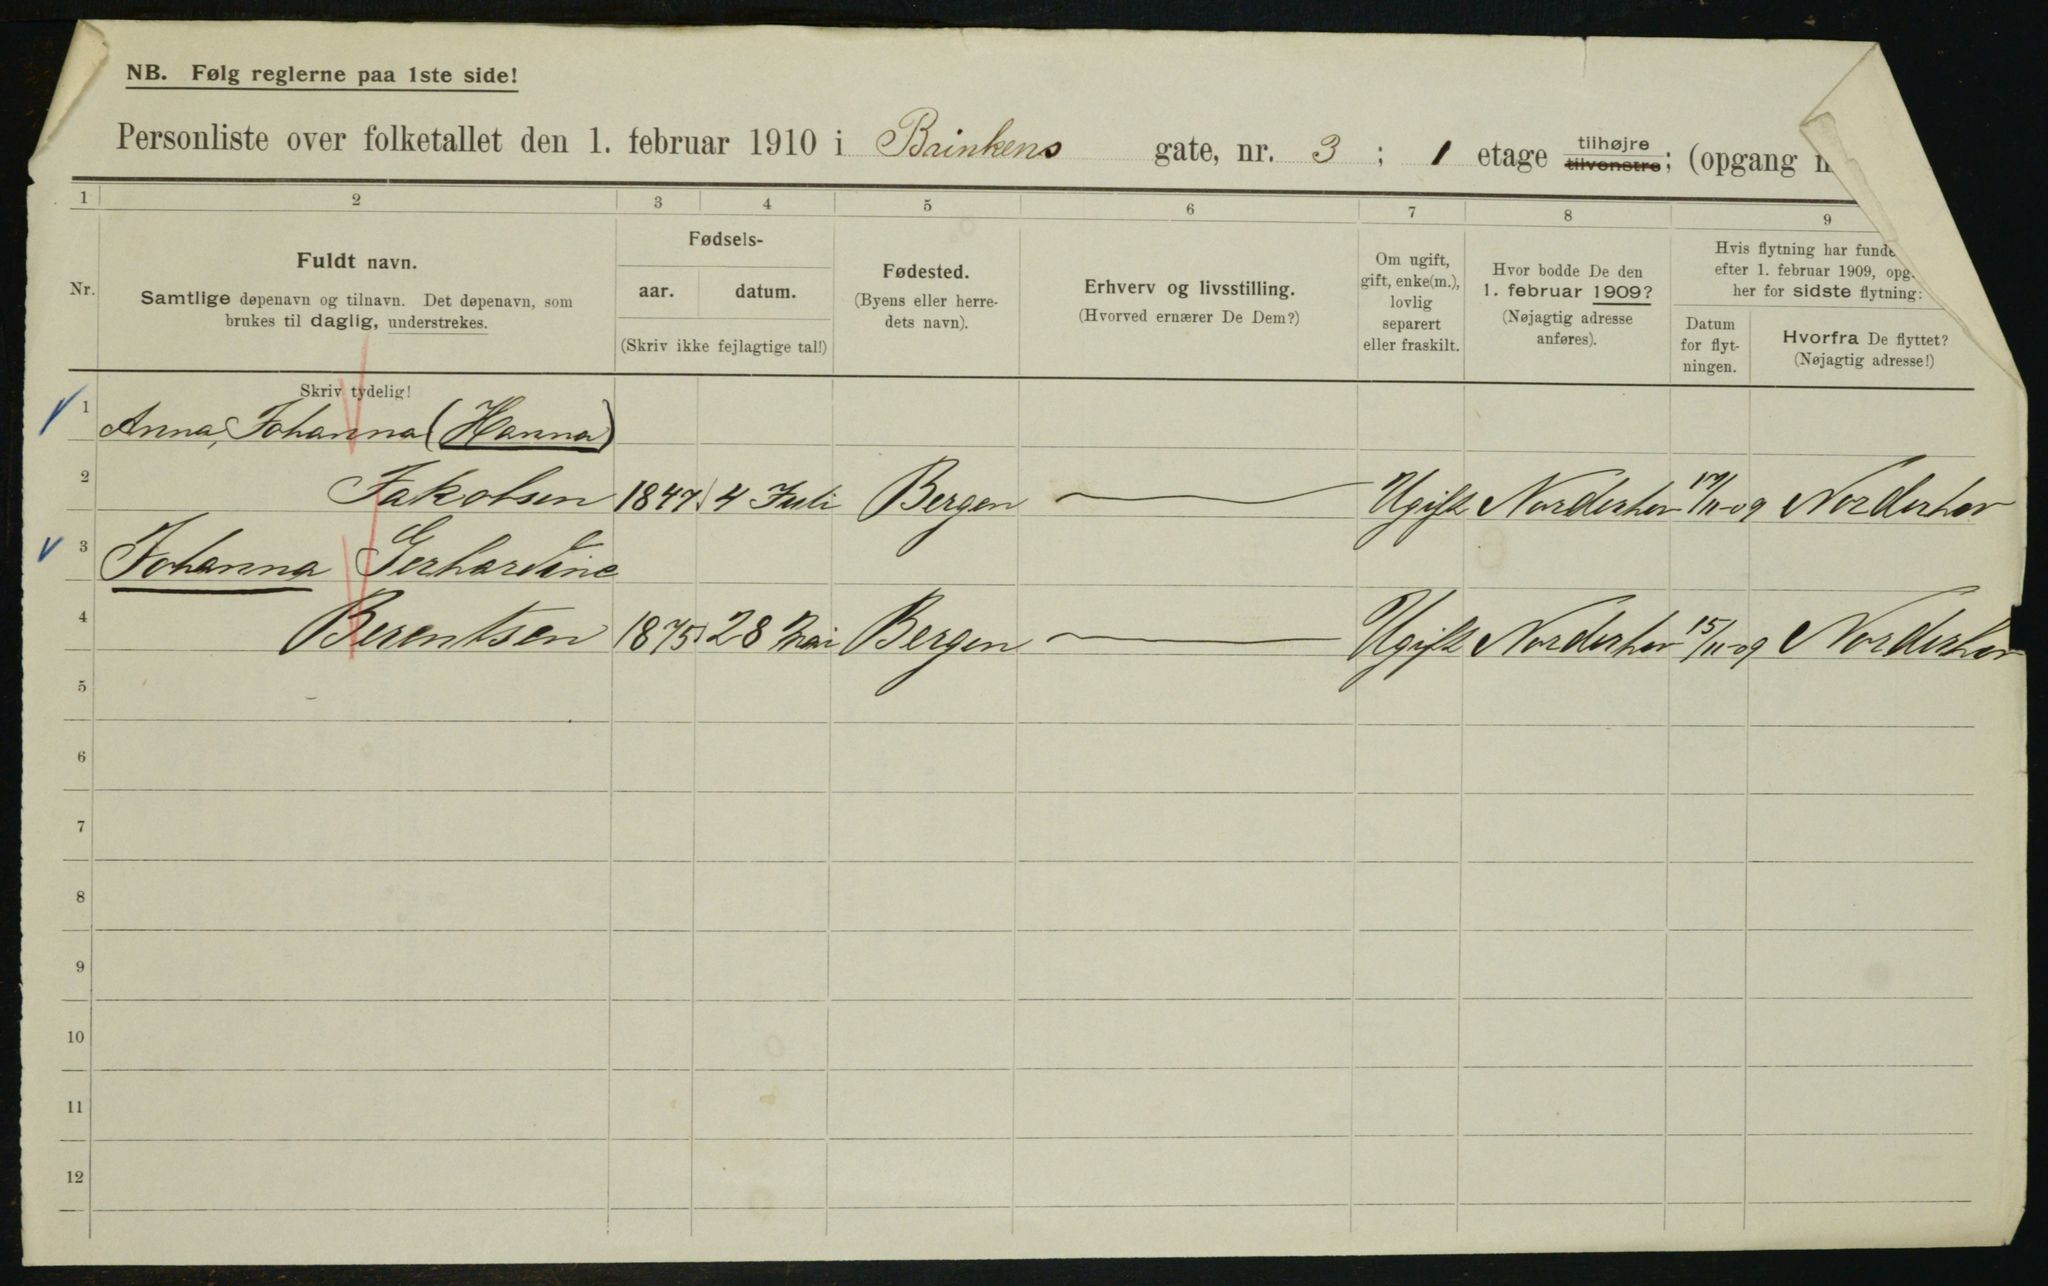 NB. Følg reglerne paa 1ste side!
Personliste over folketallet den 1. februar 1910 i Brinkens gate, nr. 3; 1 etage tilhøjre tilvenstre; (opgang
1 2 3 4 5 6 7 8 9
Nr.
Fuldt navn.
Samtlige døpenavn og tilnavn. Det døpenavn, som
brukes til daglig, understrekes.
Skriv tydelig!
Fødsels-
aar. datum.
(Skriv ikke fejlagtige tal!)
Fødested.
(Byens eller herre-
dets navn).
Erhverv og livsstilling.
(Hvorved ernærer De Dem?)
Om ugift,
gift, enke(m.),
lovlig
separert
eller fraskilt.
Hvor bodde De den
1. februar 1909?
(Nøjagtig adresse
anføres).
Hvis flytning har
efter 1. februar 1909,
her for sidste flytning:
Datum
for flyt-
ningen.
Hvorfra De flyttet?
(Nøjagtig adresse!)
1 Anna, Johanna (Hanna)
2 Jakobsen 1847 4 Juli Bergen Ugift Norderhov 17/11-09 Norderhov
3 Johanna Gerhardine
4 Berentsen 1875 28 Mai Bergen Ugift Norderhov 15/11-09 Norderhov
5
6
7
8
9
10
11
12